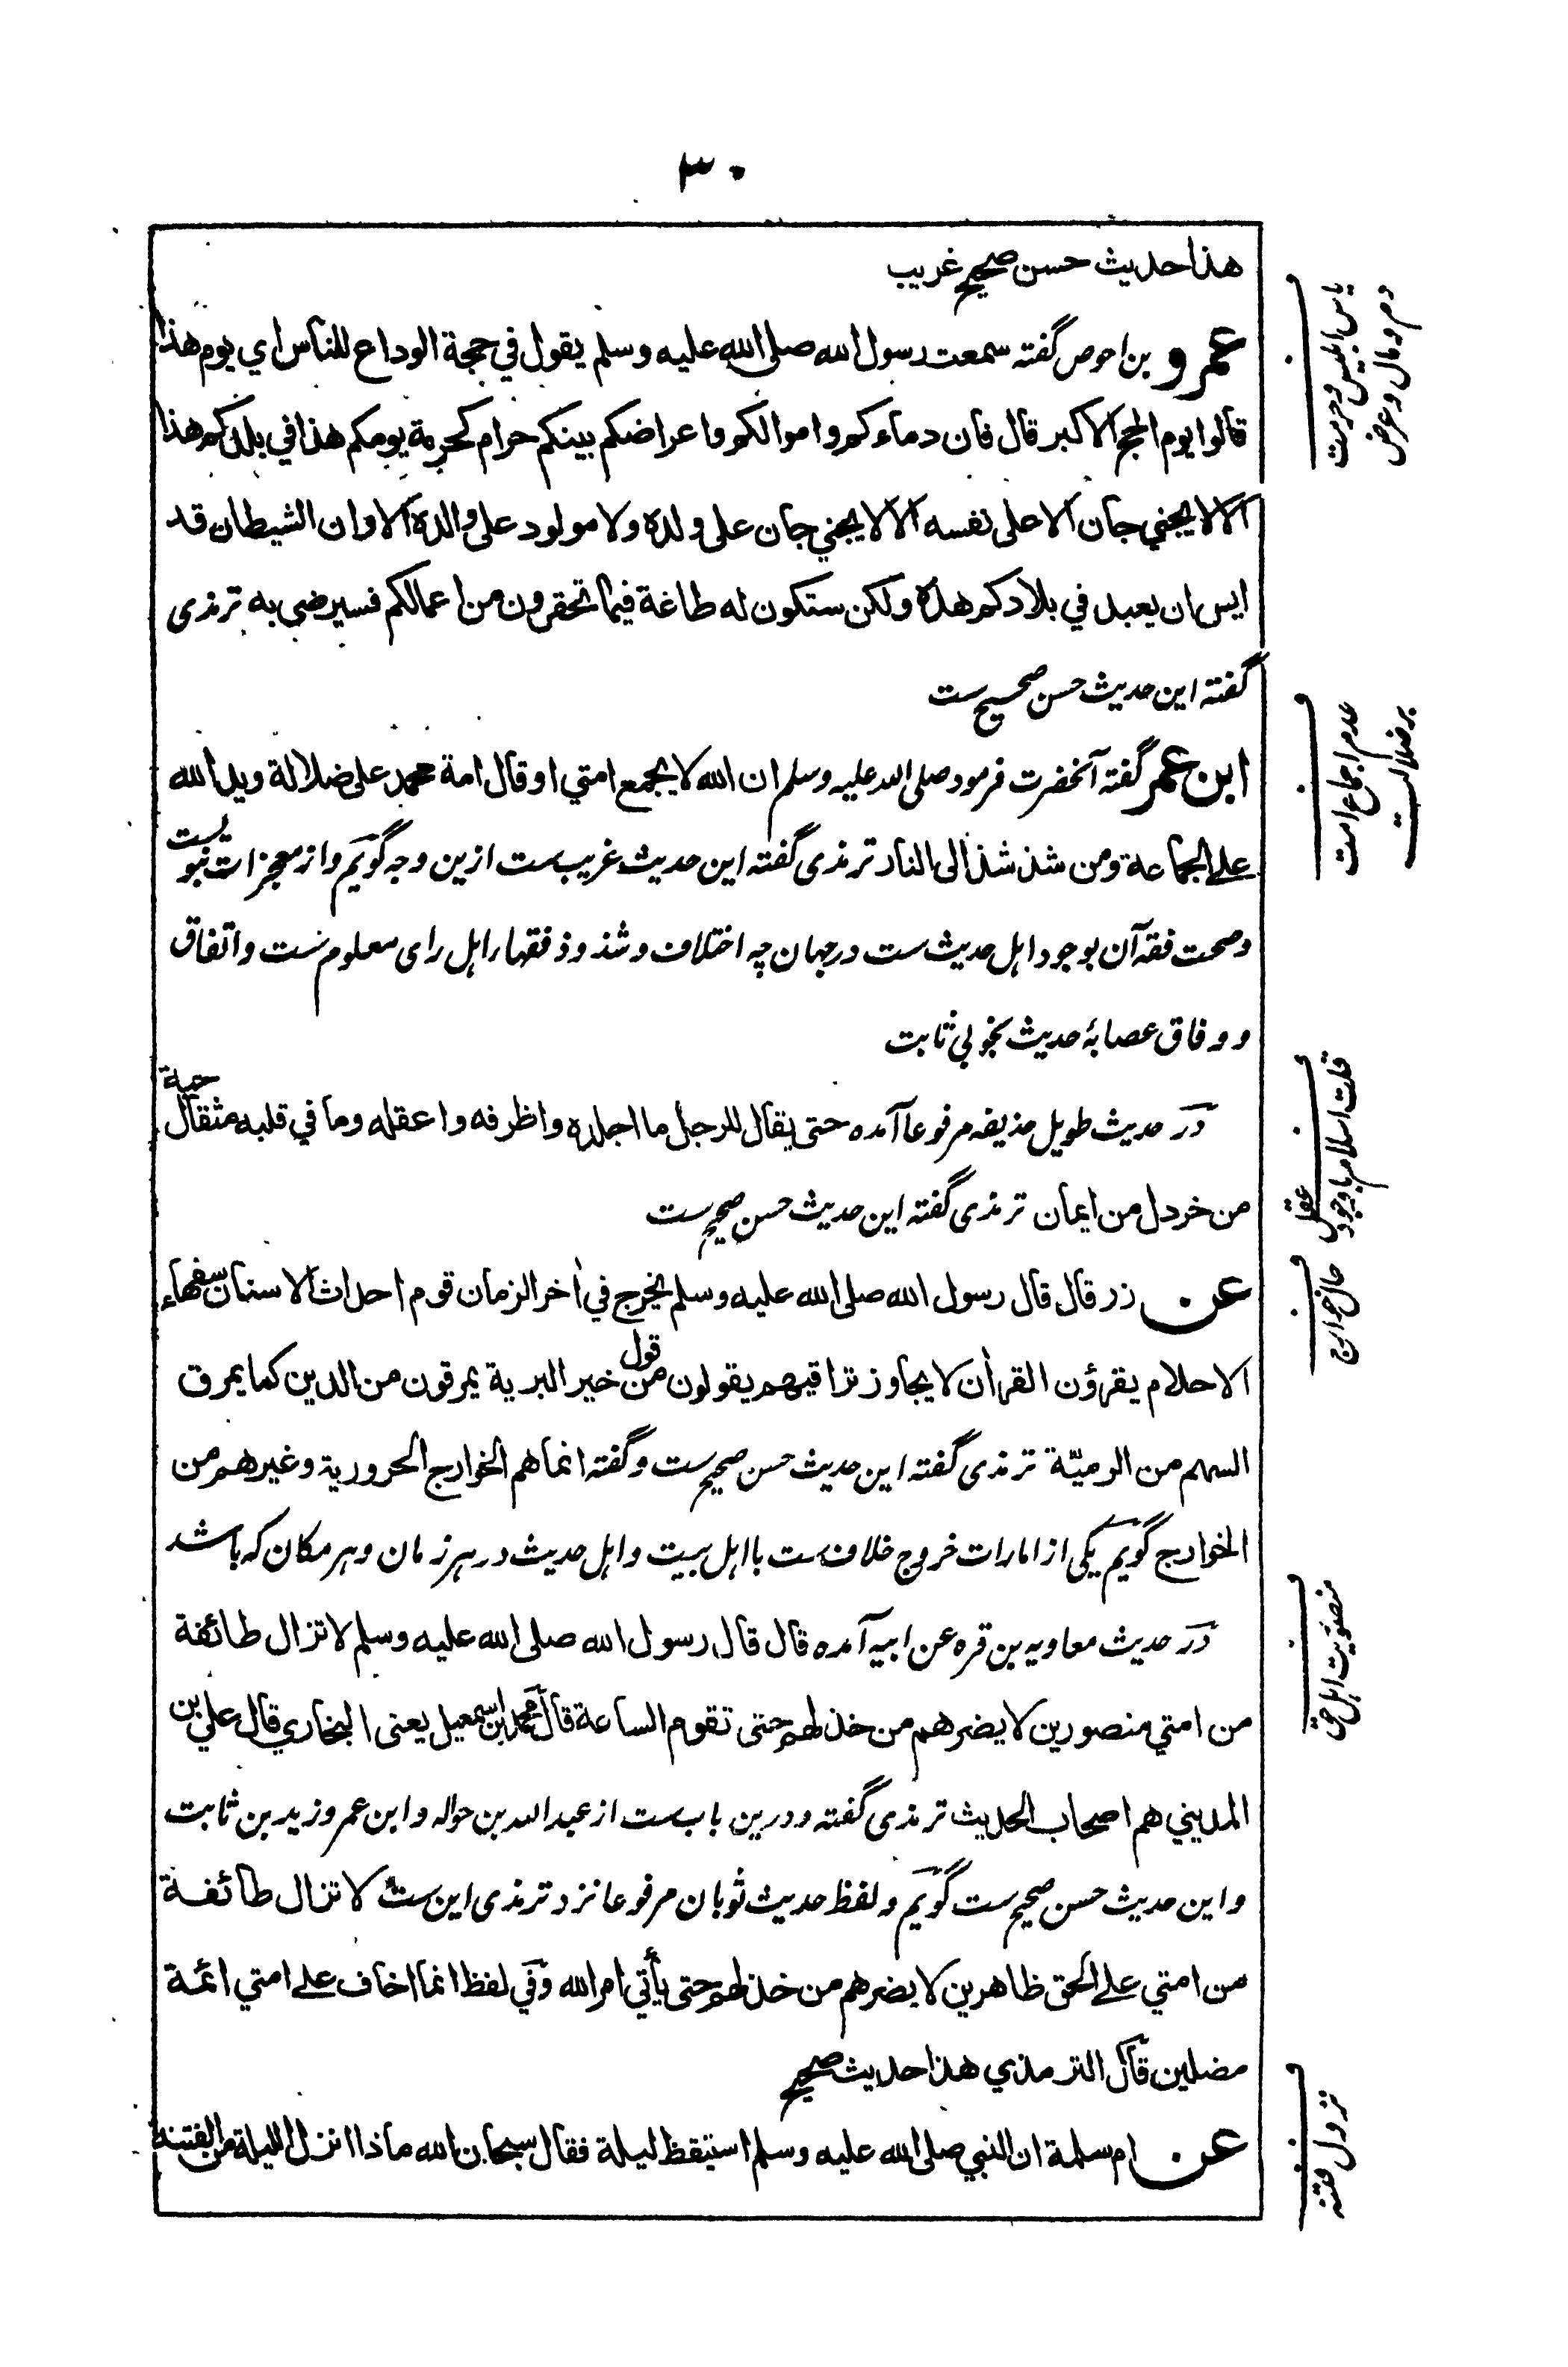 ۳۰
هذا حديث حسن صحيح غريب
عمرو بن احوص گفته سمعت رسول الله صلى الله عليه وسلم يقول في حجة الوداع للناس اي يوم هذا
قالوا يوم الحج الاكبر قال فان دماءكم واموالكم واعراضكم بينكم حرام كحرمة يومكم هذا في بلدكم هذا
الا لا يجني جان الا على نفسه الا لا يجني جان على ولده ولا مولود على والده الا وان الشيطان قد
ايس ان يعبد في بلادكم هذه ولكن ستكون له طاعة فيما تحقرون من اعمالكم فسيرضى به ترمذی
گفته این حدیث حسن صحیح ست
ابن عمر گفته آنحضرت فرمود صلی الله علیه وسلم ان الله لا يجمع امتي او قال امة محمد على ضلالة ويد الله
على الجماعة ومن شذ شذ الى النار ترمذی گفته این حدیث غریب ست ازین وجه گویم واز معجزات نبویست
وصحت فقه آن بوجود اهل حدیث ست در جهان چه اختلاف وشذوذ فقهاء اهل رای معلوم ست واتفاق
ووفاق عصابهٔ حدیث بخوبی ثابت
در حدیث طویل حذیفه مرفوعا آمده حتى يقال للرجل ما اجلده واظرفه واعقله وما في قلبه مثقال حبة
من خردل من ايمان ترمذی گفته این حدیث حسن صحیح ست
عن زر قال قال رسول الله صلى الله عليه وسلم يخرج في أخر الزمان قوم احداث الاسنان سفهاء
الاحلام يقرؤن القرأن لا يجاوز تراقيهم يقولون من قول خير البرية يمرقون من الدين كما يمرق
السهم من الرميّة ترمذی گفته این حدیث حسن صحیح ست وگفته انما هم الخوارج الحرورية وغيرهم من
الخوارج گویم یکی از امارات خروج خلاف ست با اهل بیت واهل حدیث در هر زمان وهر مکان که باشد
در حدیث معاویه بن قره عن ابیه آمده قال قال رسول الله صلى الله عليه وسلم لا تزال طائفة
من امتي منصورين لا يضرهم من خذلهم حتى تقوم الساعة قال محمد بن اسمعيل يعنى البخاري قال علي بن
المديني هم اصحاب الحديث ترمذی گفته ودرین باب ست از عبد الله بن حواله وابن عمر وزید بن ثابت
واین حدیث حسن صحیح ست گویم ولفظ حدیث ثوبان مرفوعا نزد ترمذی این ست لا تزال طائفة
من امتي على الحق ظاهرين لا يضرهم من خذلهم حتى يأتي امر الله وفي لفظ انما اخاف على امتي ائمة
مضلين قال الترمذي هذا حديث صحيح
عن ام سلمة ان النبي صلى الله عليه وسلم استيقظ ليلة فقال سبحان الله ماذا انزل الليلة من الفتنة
یاس ابلیس وحرمت
دم ومال وعرض
عدم اجماع امت
بر ضلالت
قلت اسلام با وجود
عقل
حال خوارج
منصوریت اهل حق
نزول فتنه